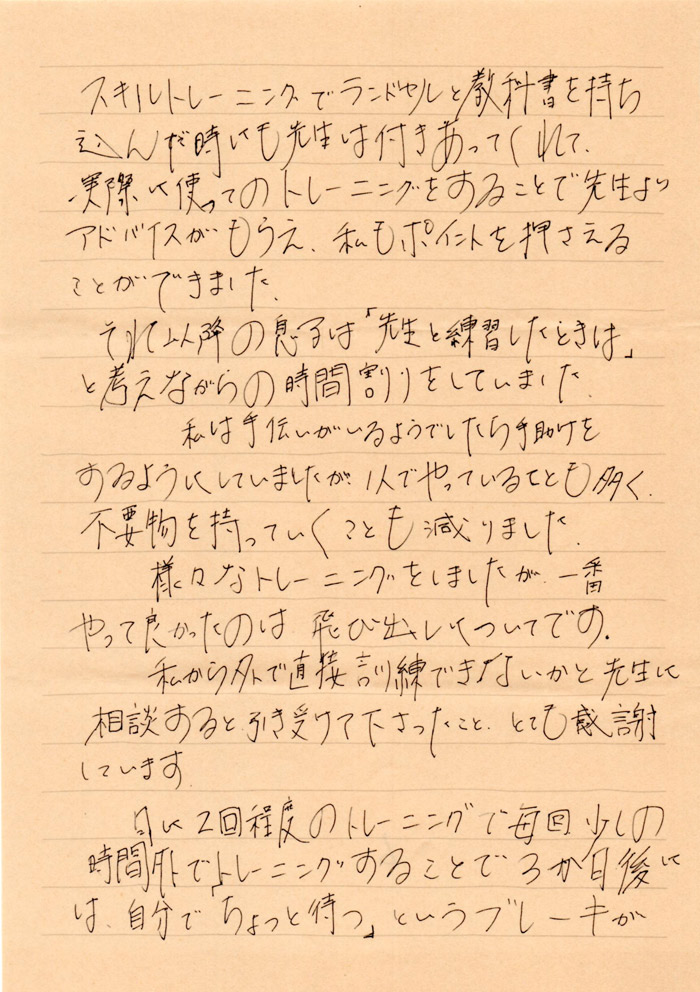 スキルトレーニングでランドセルと教科書を持ち
込んだ時にも先生は付きあってくれて、
実際に使ってのトレーニングをすることで先生より
アドバイスがもらえ、私もポイントを押さえる
ことができました。
それ以降の息子は「先生と練習したときは」
と考えながらの時間割りをしていました。
私は手伝いがいるようでしたら手助けを
するようにしていましたが、1人でやっていることも多く、
不要物を持っていくことも減りました。
様々なトレーニングをしましたが、一番
やって良かったのは飛び出しについてです。
私から外で直接訓練できないかと先生に
相談すると、引き受けて下さったこと、とても感謝
しています
月に2回程度のトレーニングで毎回少しの
時間外でトレーニングすることで3か月後に
は、自分で「ちょっと待つ」というブレーキが